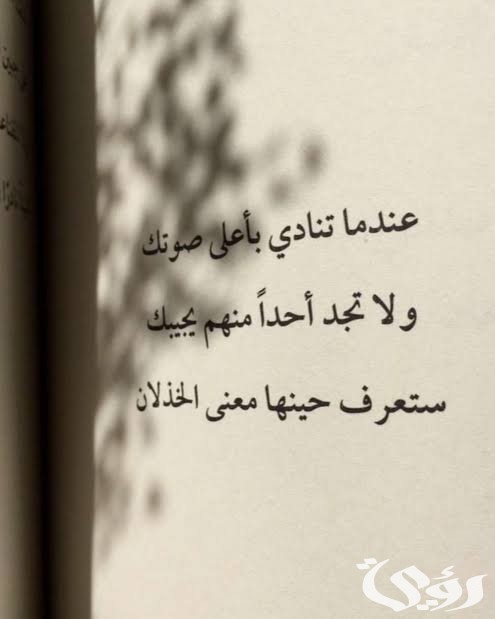 عندما تنادي بأعلى صوتك
ولا تجد أحداً منهم يجيبك
ستعرف حينها معنى الخذلان
رؤية